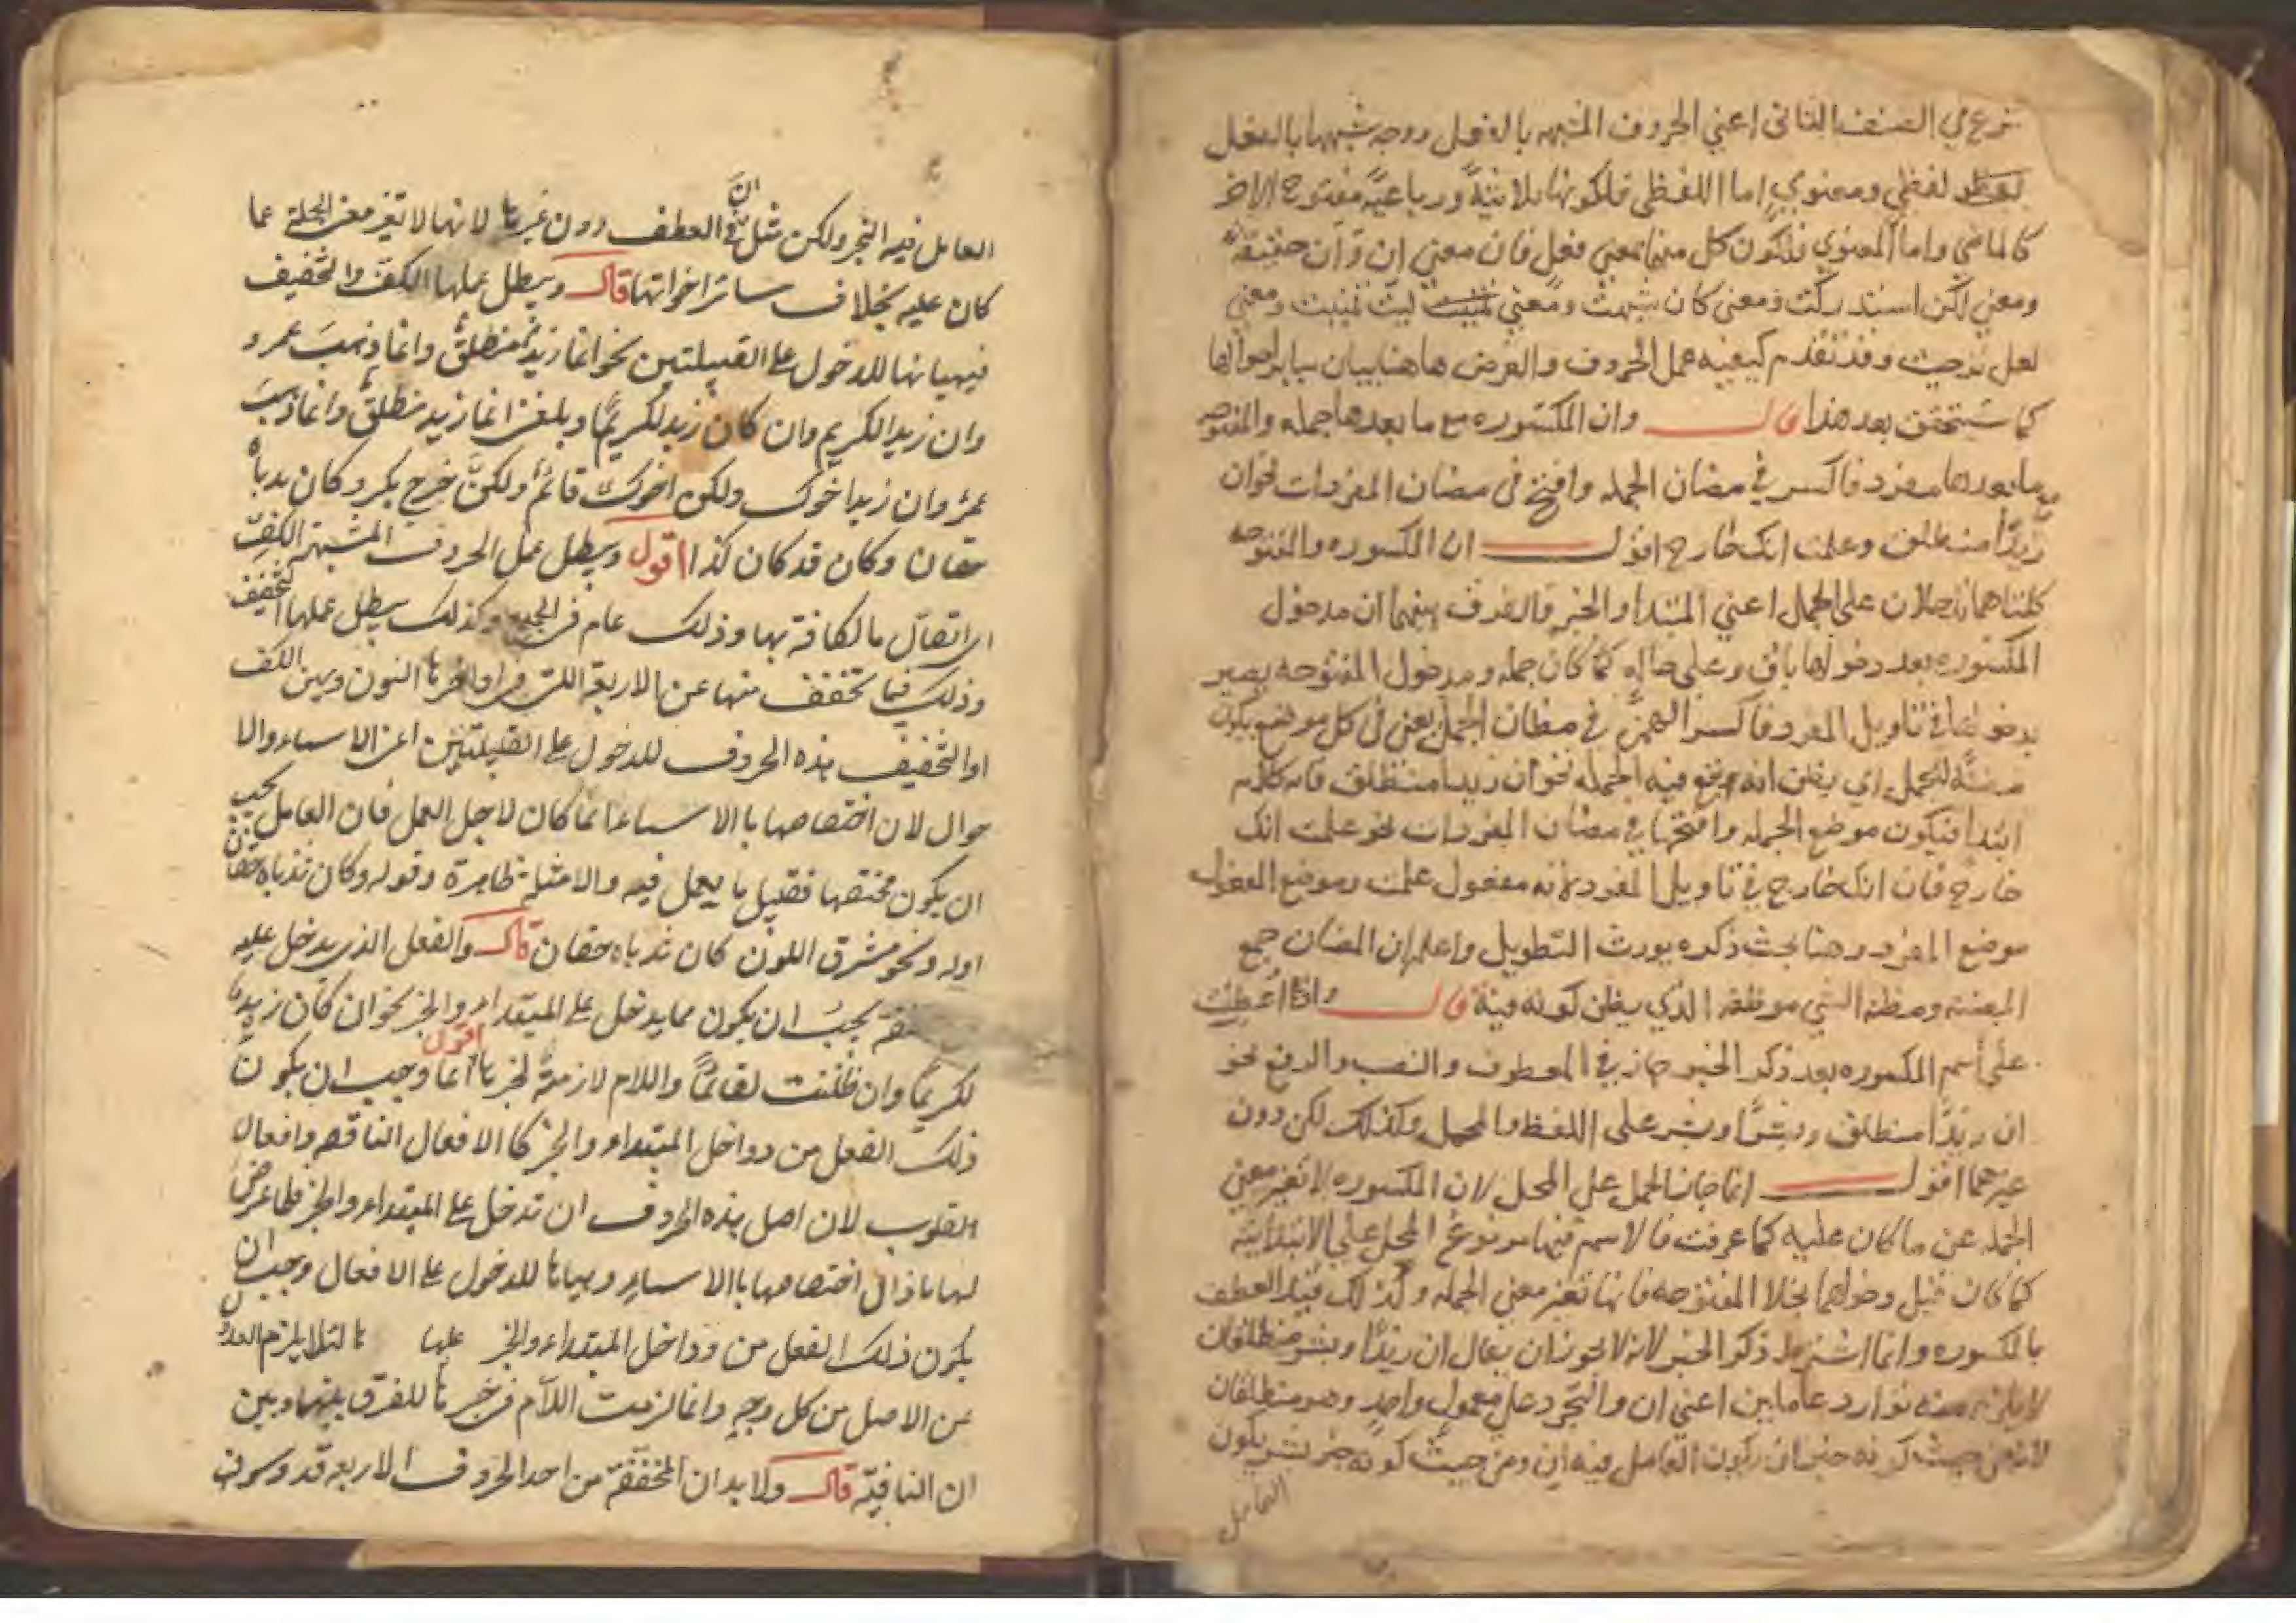 شرع في الصنف الثاني اعني الحروف المشبهه بالفعل ووجه شبهها بالفعل
لفظي ومعنوي اما اللفظي فلكونها ثلاثيةً ورباعيةً مفتوح الاخر
كالماضي واما المعنوي فلكون كل منها بمعني فعل فان معني ان وان حققة
ومعني لكن استدركت ومعني كان شبهت ومعني ليت تمنيت ومعني
لعل ترجيت وقد تقدم كيفيه عمل الحروف والغرض هاهنا بيان ساير احوالها
كما ستحقق بعد هذا قال وان المكسوره مع ما بعدها جمله والمفتوحه
مع ما بعدها مفرد فاكسر في مضان الجمله وافتح في مضان المفردات نحو ان
زيدًا منطلق وعلمت انك خارج اقول ان المكسوره والمفتوحه
كلتاهما تدخلان علي الجمل اعني المبتدا والخبر والفرق بينهما ان مدخول
المكسوره بعد دخولها باق وعلي حاله كما كان جمله ومدخول المفتوحه يصير
بدخولها في تاويل المفرد فاكسر الهمزة في مظان الجمل يعني في كل موضع يكون
مظنة للجمل اي يظن انه يقع فيه الجمله نحو ان زيدا منطلق فانه كلام
ابتدا فيكون موضع الجمله وافتحها في مضان المفردات نحو علمت انك
خارج فان انك خارج في تاويل المفرد لانه مفعول علمت وموضع المفعول
موضع المفرد وهنا بحث ذكره يورث التطويل واعلم ان المضان جمع
المظنه ومظنة الشي موظعه الذي يظن كونه فيه قال واذا عطفت
علي اسم المكسوره بعد ذكر الخبر جاز في المعطوف والنصب والرفع نحو
ان زيدًا منطلق وبشرًا وبشر علي اللفظ والمحمل وكذلك لكن دون
غيرهما اقول انما جاز الحمل علي المحل لان المكسوره لا تغير معني
الجمله عن ما كان عليه كما عرفت فالاسم فيها مرفوع المحل علي الابتدايئه
كما كان قبل دخولها بخلا المفتوحه فانها تغير معني الجمله ولذلك قيد العطف
بالمكسوره وانما اشترط ذكر الخبر لانه لا يجوز ان يقال ان زيدًا وبشر منطلقان
لا يلزم منه توارد عاملين اعني ان والتجرد علي معمول واحد وهو منطلقان
لانه من حيث كونه خبر ان يكون العامل فيه ان ومن حيث كونه خبر بشر يكون
العامل
العامل فيه التجرد ولكن مثل ان في العطف دون غيرها لانها لا تغير معنى الجملة عما
كان عليه بخلاف سائر اخواتها قال ويبطل عملها الكف والتخفيف
فيهيانها للدخول على القبيلتين نحو انما زيدٌ منطلقٌ وانما ذهبَ عمرو
وان زيد الكريم وان كان زيد لكريمًا وبلغني انما زيد منطلقٌ وانما ذهبَ
عمرٌ وان زيدا خوك ولكن اخوك قائمٌ ولكن خرج بكر وكان ثدياه
حقان وكان قد كان كذا اقول ويبطل عمل الحروف المشبهة الكف
اى اتصال ما الكافة بها وذلك عام في الجميع وكذلك يبطل عملها التخفيف
وذلك فيما تخفف منها عن الاربعة التي في اواخرها النون وبين الكف
او التخفيف هذه الحروف للدخول على القبيلتين اعنى الاسماء والا
حوال لان اختصاصها باالاسماء انما كان لاجل العمل فان العامل يجب
ان يكون مختصها فقبيل ما يعمل فيه والامثلة ظاهرة وقوله وكان ثدياه حقان
اوله ونحو مشرق اللون كان ثدياه حقان قال والفعل الذى يدخل عليه
يجبُ ان يكون مما يدخل على المبتداء والخبر نحو ان كان زيد
لكريمًا وان ظننت لقائمًا واللام لازمةٌ لخبرها اقول انما وجب ان يكون
ذلك الفعل من دواخل المبتداء والخبر كا الافعال الناقصه وافعال
القلوب لان اصل هذه الحروف ان تدخل على المبتداء والخبر فلما عرض
لها ما ازال اختصاصها باالاسماء وهيأها للدخول على الافعال وجب ان
يكون ذلك الفعل من دواخل المبتداء والخبر لئلا يلزم العدول
عن الاصل من كل وجهٍ وانما لزمت اللام في خبرها للفرق بينها وبين
ان النافيّة قال ولا بد ان المخففة من احد الحروف الاربعه قد وسوف